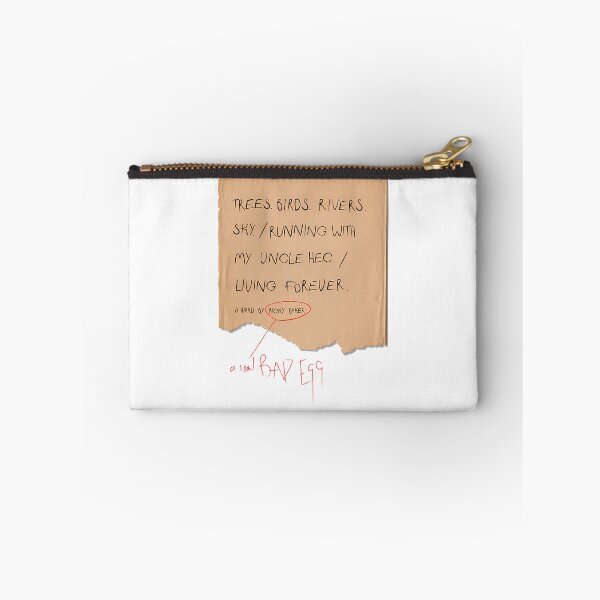 TREES. BIRDS. RIVERS.
SKY. / RUNNING WITH
MY UNCLE HEC /
LIVING FOREVER.
A HAIKU BY RICKY BAKER
a real BAD EGG